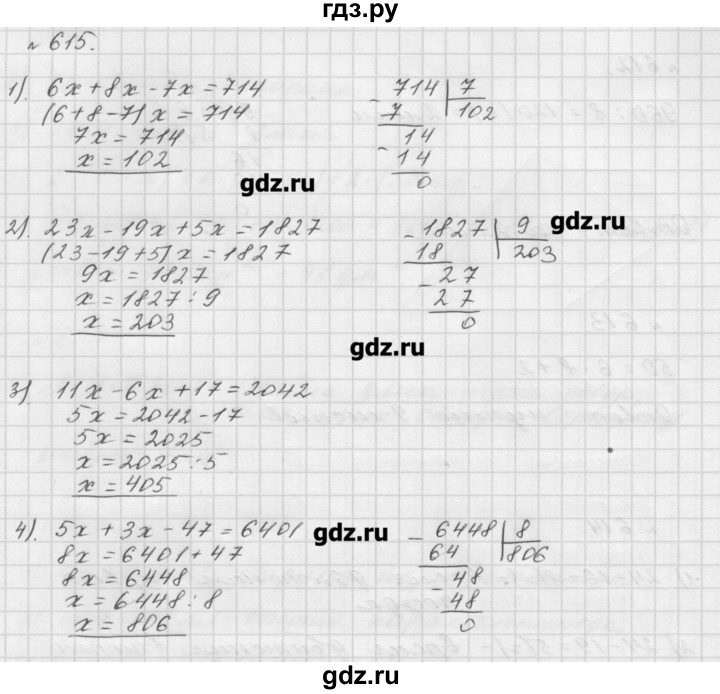 гдз.ру
№ 615.
1). 6x + 8x - 7x = 714
(6 + 8 - 7)x = 714
7x = 714
x = 102
- 714 | 7
7 | 102
14
- 14
0
gdz.ru
2). 23x - 19x + 5x = 1827
(23 - 19 + 5)x = 1827
9x = 1827
x = 1827 : 9
x = 203
- 1827 | 9
18 | 203
- 27
27
0
gdz.ru
gdz.ru
3). 11x - 6x + 17 = 2042
5x = 2042 - 17
5x = 2025
x = 2025 : 5
x = 405
4). 5x + 3x - 47 = 6401
8x = 6401 + 47
8x = 6448
x = 6448 : 8
x = 806
gdz.ru
- 6448 | 8
64 | 806
- 48
48
0
gdz.ru